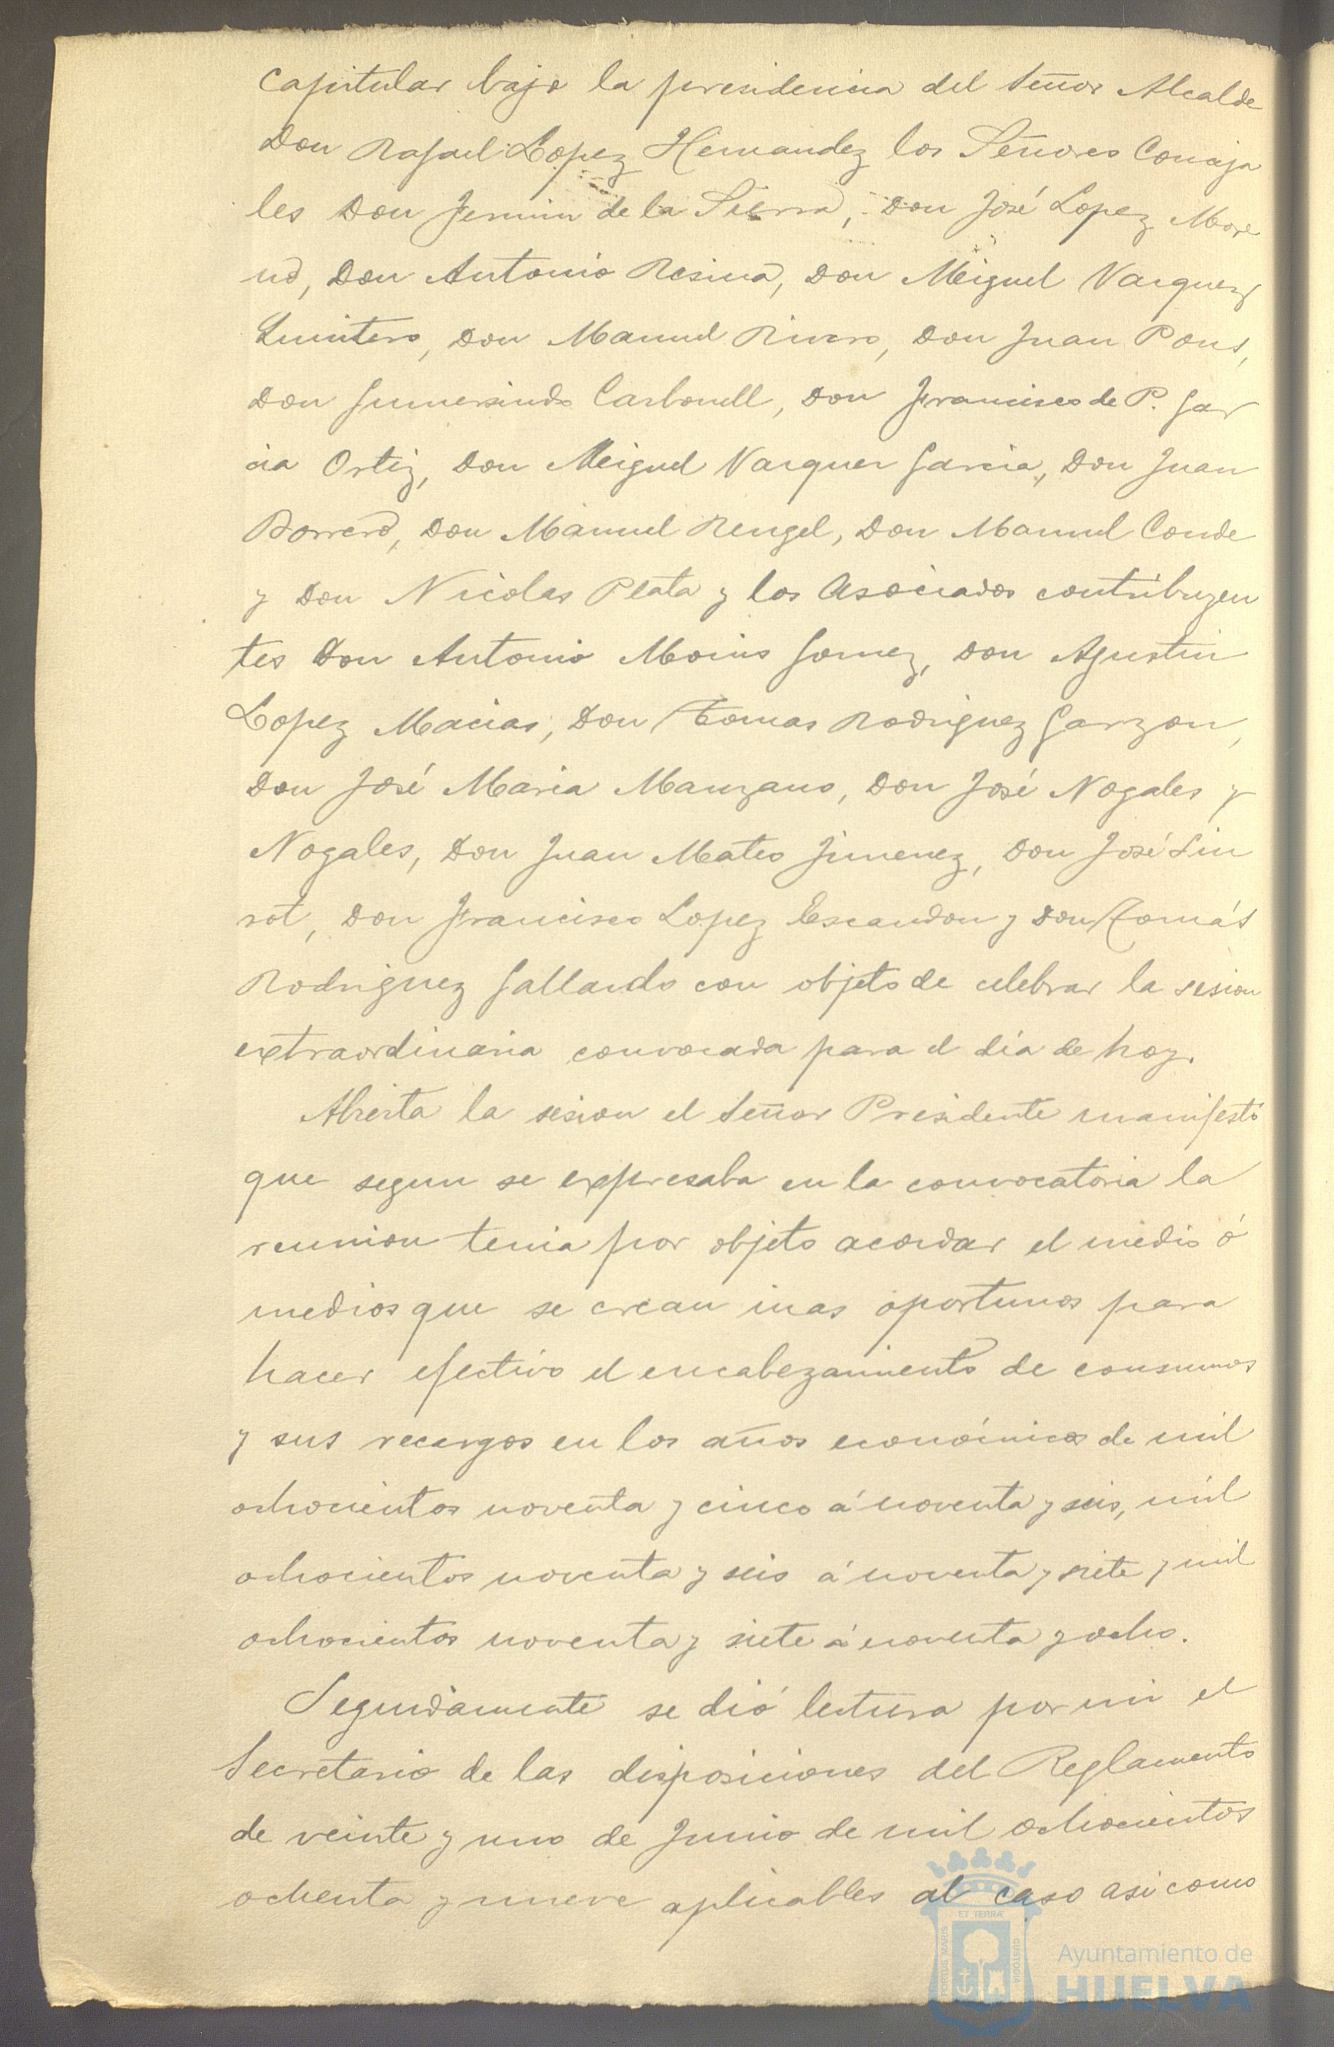 Capitular bajo la presidencia del Señor Alcalde
Don Rafael Lopez Hernandez los Señores Conceja
les Don Fermin de la Sierra, Don José Lopez More
no, Don Antonio Resina, Don Miguel Vazquez
Quintero, Don Manuel Rivero, Don Juan Pons,
Don Gumersindo Carbonell, Don Francisco de P. Gar
cia Ortiz, Don Miguel Vazquez Garcia, Don Juan
Borrero, Don Manuel Rengel, Don Manuel Conde
y Don Nicolas Plata y los Asociados contribuyen
tes Don Antonio Gomez, Don Agustin
Lopez Macias, Don Tomas Rodriguez Garzon,
Don José Maria Manzano, Don José Nogales y
Nogales, Don Juan Mateo Jimenez, Don José
Don Francisco Lopez Escandon y Don Tomás
Rodriguez Gallardo con objeto de celebrar la sesion
extraordinaria convocada para el dia de hoy.
Abierta la sesion el Señor Presidente manifestó
que segun se expresaba en la convocatoria la
reunion tenia por objeto acordar el medio ó
medios que se crean mas oportunos para
hacer efectivo el encabezamiento de consumos
y sus recargos en los años económicos de mil
ochocientos noventa y cinco á noventa y seis, mil
ochocientos noventa y seis á noventa y siete y mil
ochocientos noventa y siete á noventa y ocho.
Seguidamente se dió lectura por mi el
Secretario de las disposiciones del Reglamento
de veinte y uno de Junio de mil ochocientos
ochenta y nueve aplicables al caso asi como
Ayuntamiento de
HUELVA